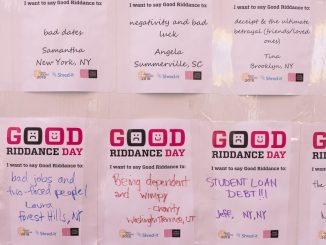 I want to say Good Riddance to:
bad dates
Samantha
New York, NY
Shred-it
I want to say Good Riddance to:
negativity and bad
luck
Angela
Summerville, SC
Shred-it
I want to say Good Riddance to:
deceipt & the ultimate
betrayal (friends/loved
ones)
Tina
Brooklyn, NY
Shred-it
GOOD
RIDDANCE DAY
I want to say Good Riddance to:
bad jobs and
two-faced people!
Laura
Forest Hills, NY
Shred-it
GOOD
RIDDANCE DAY
I want to say Good Riddance to:
Being dependent
and wimpy
-charity
Washington Terrace, UT
Shred-it
GOOD
RIDDANCE DAY
I want to say Good Riddance to:
STUDENT LOAN
DEBT!!!
JEFF, NY, NY
Shred-it